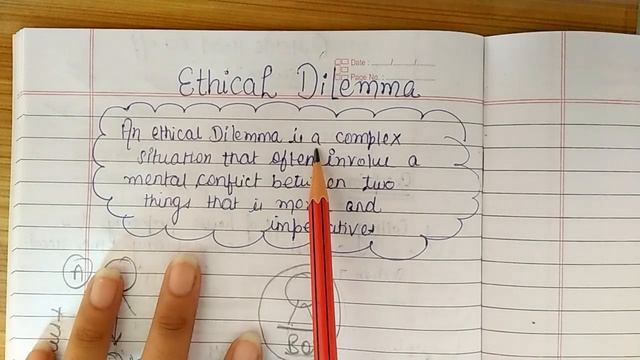 Date :
Page No. :
Ethical Dilemma
An ethical Dilemma is a complex
situation that often involve a
mental conflict between two
things that is and
imperatives
A
BO